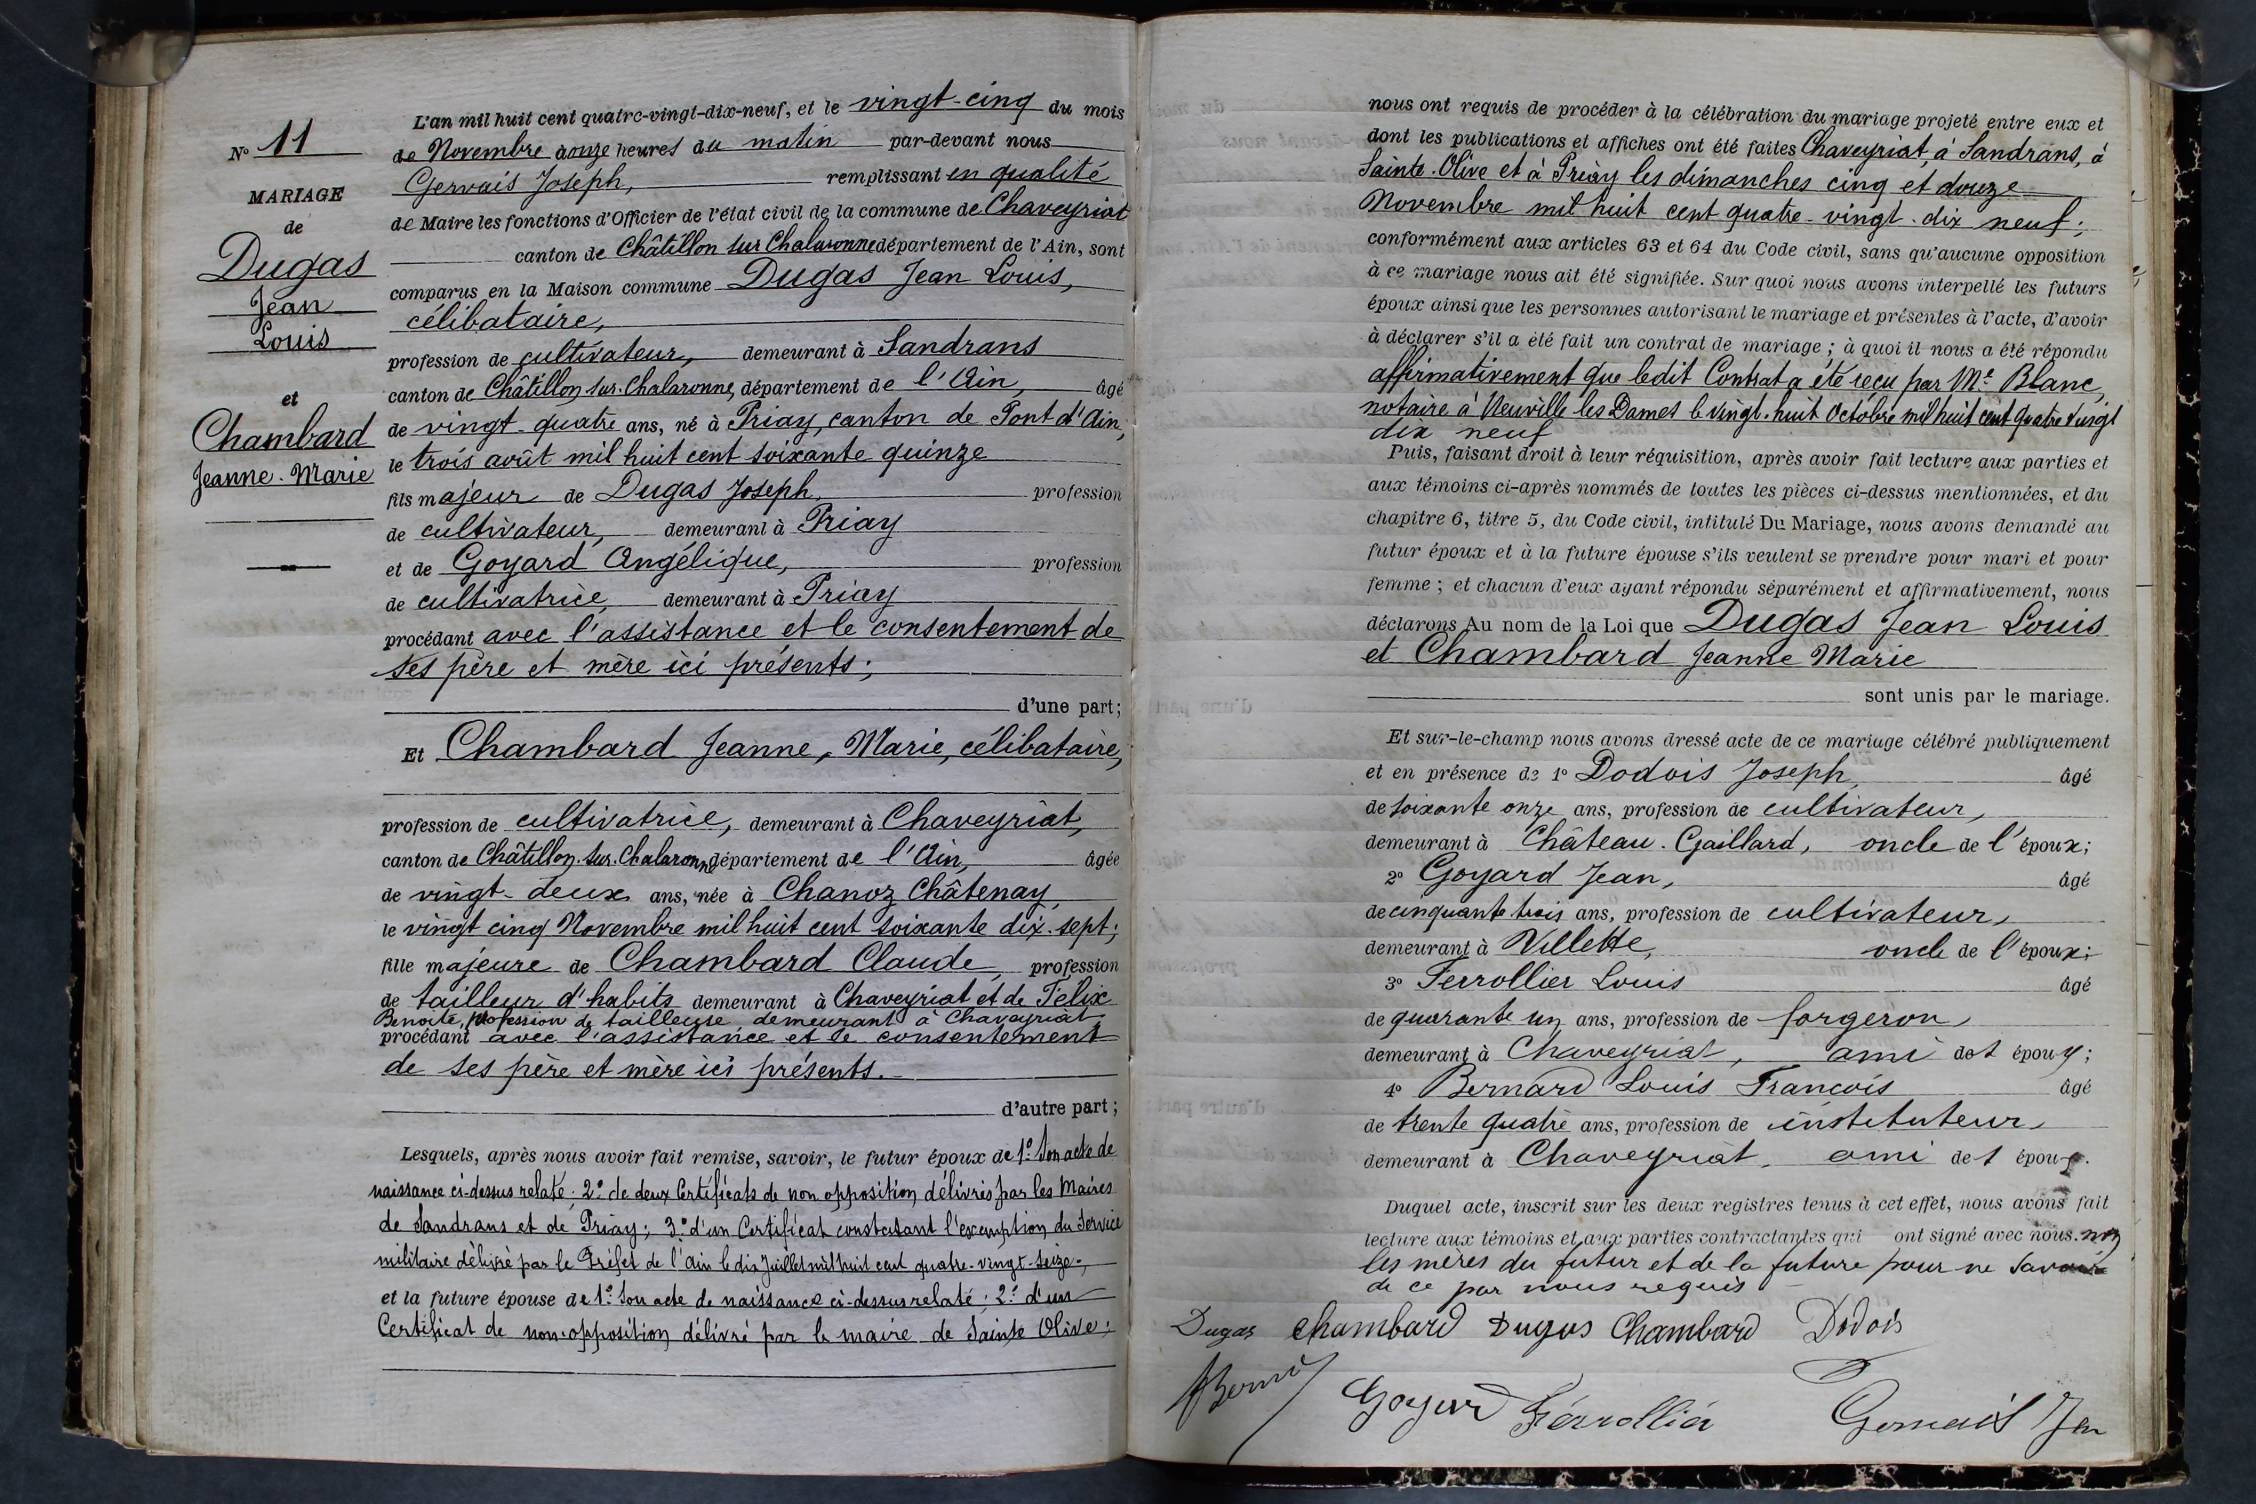 N° 11
MARIAGE
de
Dugas
Jean
Louis
et
Chambard
Jeanne-Marie
L'an mil huit cent quatre-vingt-dix-neuf, et le vingt-cinq du mois
de Novembre à onze heures du matin par-devant nous
Gervais Joseph, remplissant en qualité
de Maire les fonctions d'Officier de l'état civil de la commune de Chaveyriat
canton de Châtillon sur Chalaronne département de l'Ain, sont
comparus en la Maison commune Dugas Jean Louis,
célibataire,
profession de cultivateur, demeurant à Sandrans
canton de Châtillon-sur-Chalaronne, département de l'Ain, âgé
de vingt-quatre ans, né à Priay, canton de Pont d'Ain,
le trois août mil huit cent soixante quinze
fils majeur de Dugas Joseph, profession
de cultivateur, demeurant à Priay
et de Goyard Angélique, profession
de cultivatrice, demeurant à Priay
procédant avec l'assistance et le consentement de
ses père et mère ici présents;
d'une part;
Et Chambard Jeanne, Marie, célibataire,
profession de cultivatrice, demeurant à Chaveyriat,
canton de Châtillon-sur-Chalaronne département de l'Ain, âgée
de vingt-deux ans, née à Chanoz Châtenay,
le vingt cinq Novembre mil huit cent soixante dix-sept;
fille majeure de Chambard Claude, profession
de tailleur d'habits demeurant à Chaveyriat et de Félix
Benoite, profession de tailleuse, demeurant à Chaveyriat,
procédant avec l'assistance et le consentement
de ses père et mère ici présents.
d'autre part;
Lesquels, après nous avoir fait remise, savoir, le futur époux de 1° son acte de
naissance ci-dessus relaté; 2° de deux Certificats de non opposition délivrés par les Maires
de Sandrans et de Priay; 3° d'un Certificat constatant l'exemption du Service
militaire délivré par le Préfet de l'Ain le dix Juillet mil huit cent quatre-vingt-seize,
et la future épouse de 1° son acte de naissance ci-dessus relaté; 2° d'un
Certificat de non-opposition délivré par le maire de Sainte Olive;
nous ont requis de procéder à la célébration du mariage projeté entre eux et
dont les publications et affiches ont été faites Chaveyriat, à Sandrans, à
Sainte-Olive et à Priay les dimanches cinq et douze
Novembre mil huit cent quatre-vingt-dix neuf;
conformément aux articles 63 et 64 du Code civil, sans qu'aucune opposition
à ce mariage nous ait été signifiée. Sur quoi nous avons interpellé les futurs
époux ainsi que les personnes autorisant le mariage et présentes à l'acte, d'avoir
à déclarer s'il a été fait un contrat de mariage; à quoi il nous a été répondu
affirmativement que ledit Contrat a été reçu par Me Blanc,
notaire à Neuville les Dames le vingt-huit Octobre mil huit cent quatre vingt
dix neuf
Puis, faisant droit à leur réquisition, après avoir fait lecture aux parties et
aux témoins ci-après nommés de toutes les pièces ci-dessus mentionnées, et du
chapitre 6, titre 5, du Code civil, intitulé Du Mariage, nous avons demandé au
futur époux et à la future épouse s'ils veulent se prendre pour mari et pour
femme; et chacun d'eux ayant répondu séparément et affirmativement, nous
déclarons Au nom de la Loi que Dugas Jean Louis
et Chambard Jeanne Marie
sont unis par le mariage.
Et sur-le-champ nous avons dressé acte de ce mariage célébré publiquement
et en présence de 1° Dodois Joseph, âgé
de soixante onze ans, profession de cultivateur,
demeurant à Château-Gaillard, oncle de l'époux;
2° Goyard Jean, âgé
de cinquante trois ans, profession de cultivateur,
demeurant à Villette, oncle de l'époux;
3° Ferrollier Louis âgé
de quarante un ans, profession de forgeron,
demeurant à Chaveyriat, ami des époux;
4° Bernard Louis François âgé
de trente quatre ans, profession de instituteur,
demeurant à Chaveyriat, ami des époux.
Duquel acte, inscrit sur les deux registres tenus à cet effet, nous avons fait
lecture aux témoins et aux parties contractantes qui ont signé avec nous. non
les mères du futur et de la future pour ne savoir
de ce par nous requis
Dugas Chambard Dugas Chambard Dodois
Goyard Ferrollier Gervais Jh